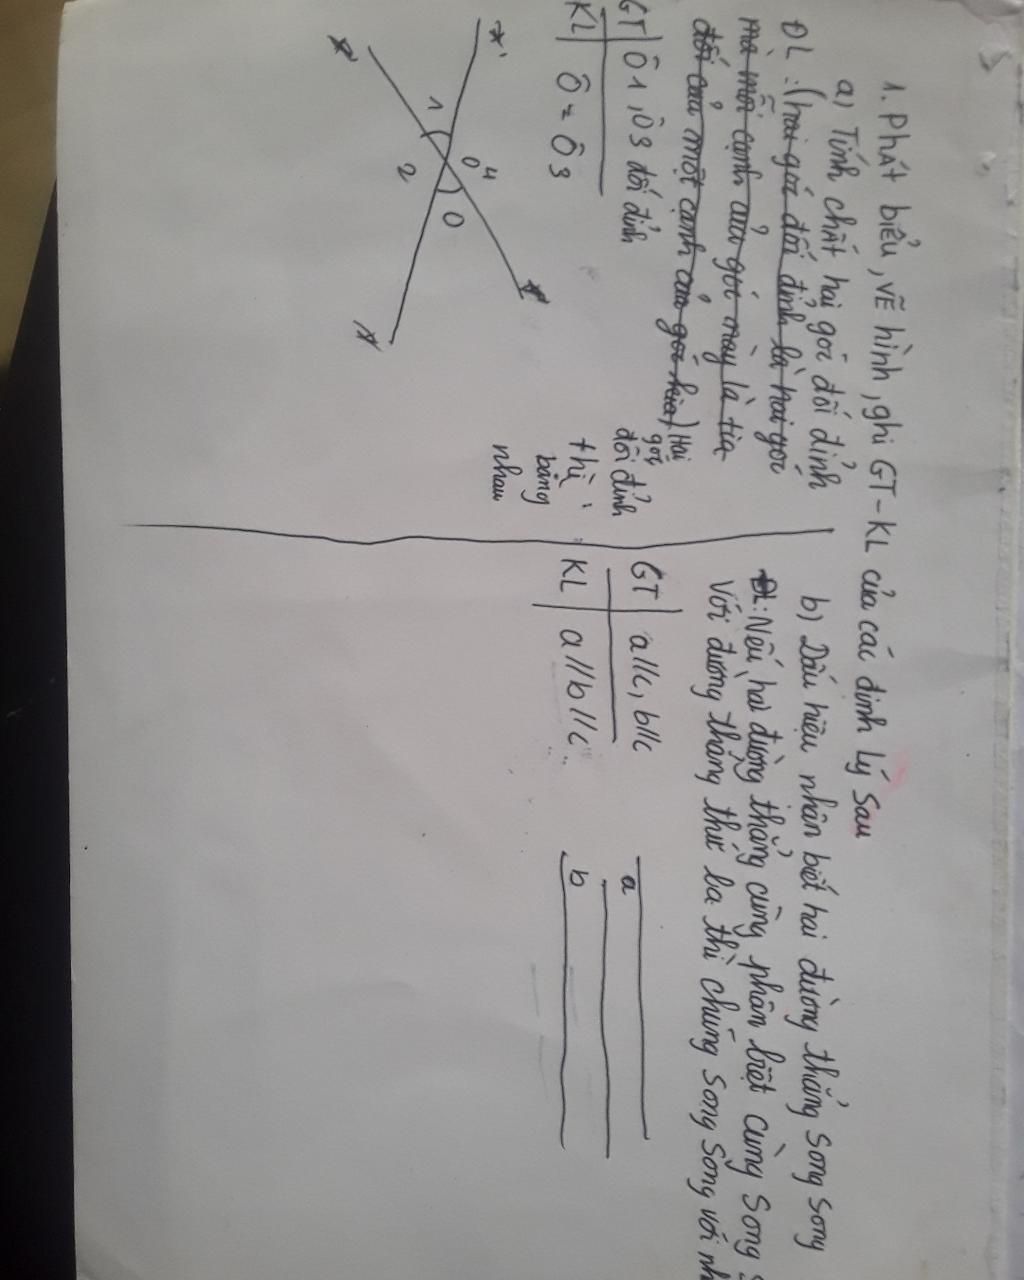 1. Phát biểu, vẽ hình, ghi GT-KL của các định lý sau
a) Tính chất hai góc đối đỉnh
ĐL: (hai góc đối đỉnh là hai góc
mà mỗi cạnh của góc này là tia
đối của một cạnh của góc kia) Hai
góc
đối đỉnh
thì
bằng
nhau
GT Ô1, Ô3 đối đỉnh
KL Ô = Ô3
x'
1
2
O 4
O
b) Dấu hiệu nhận biết hai đường thẳng song song
ĐL: Nếu hai đường thẳng cùng phân biệt cùng song
với đường thẳng thứ ba thì chúng song song với nh
GT a//c, b//c
KL a//b//c
a
b